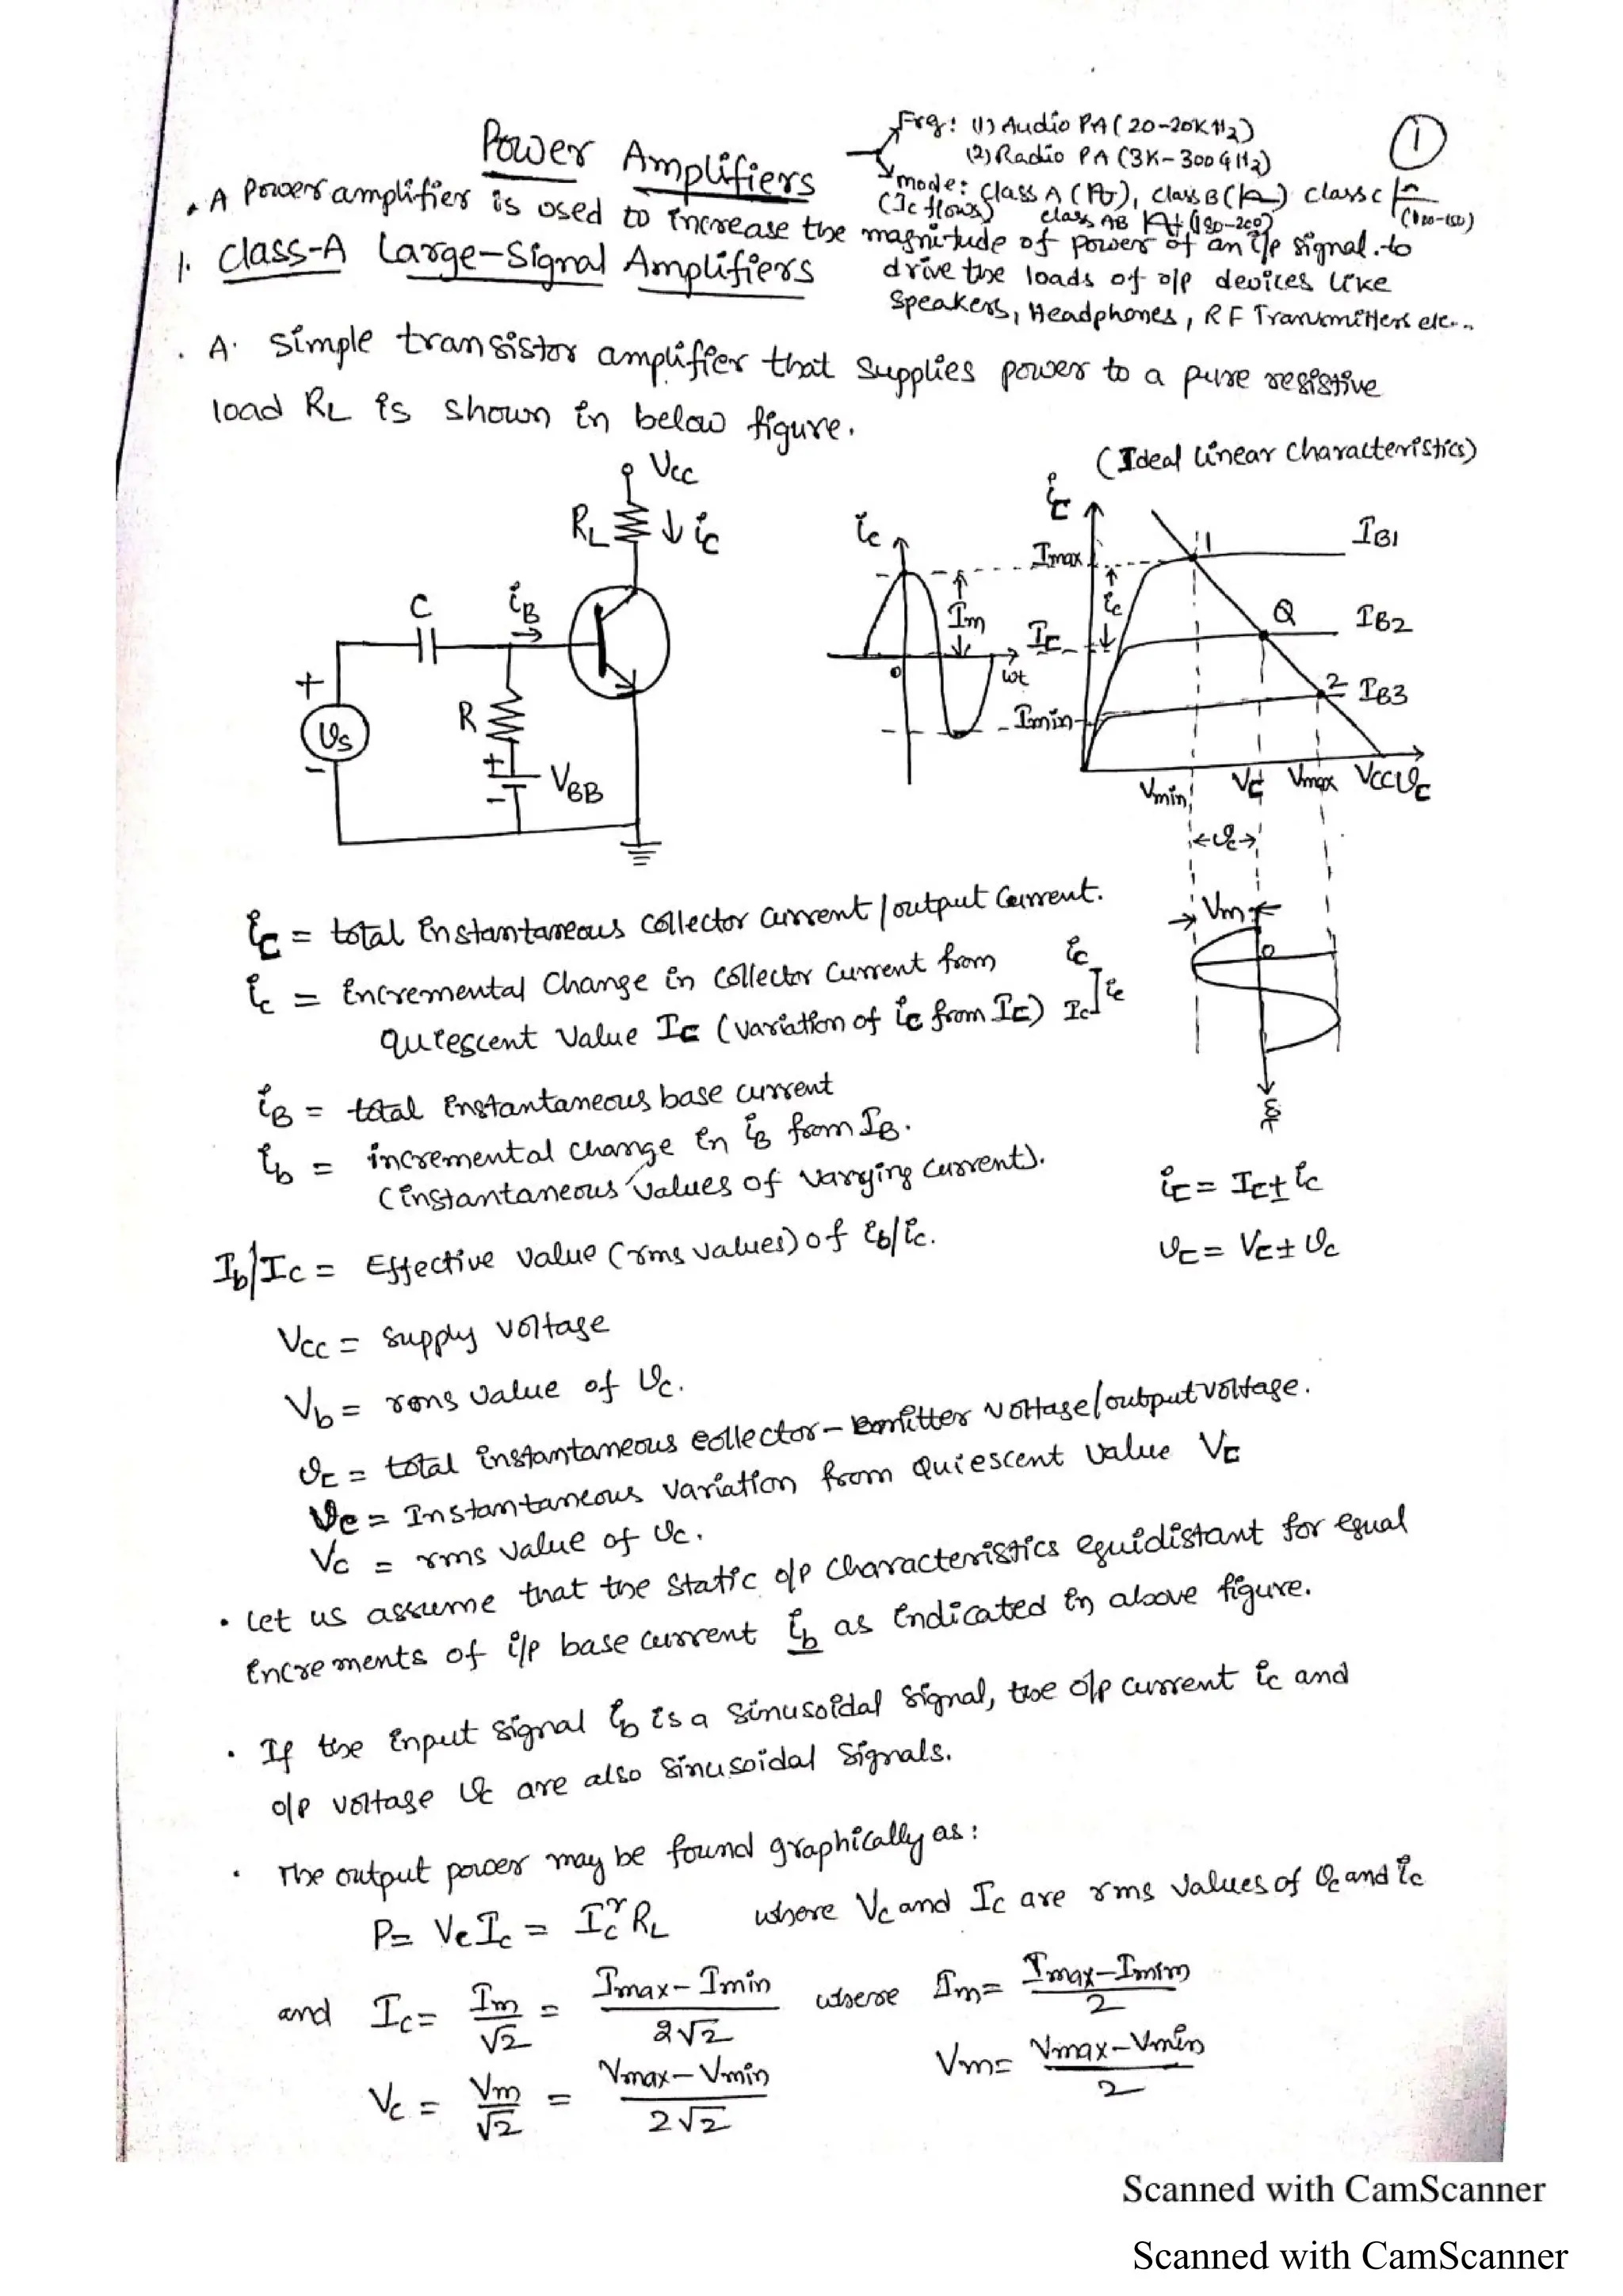 Power Amplifiers
Frq: (1) Audio PA (20-20KHz)
(2) Radio PA (3K-300GHz)
①
mode: class A, class B, class C
(Ic flows) class AB (180-200)
. A Power amplifier is used to increase the magnitude of power of an i/p signal. to
drive the loads of o/p devices like
Speakers, Headphones, RF Transmitters etc...
1. Class-A Large-Signal Amplifiers
. A simple transistor amplifier that supplies power to a pure resistive
load RL is shown in below figure.
(Ideal linear characteristics)
Vcc
RL ↓ iC
C
iB
R
+
VS
-
+
-
VBB
ic
Im
0
ωt
iC
Imax
ic
IC
Imin
1
Q
2
IB1
IB2
IB3
Vmin VC Vmax VCC vC
←vc→
Vm
0
ωt
iC = total instantaneous collector current / output current.
ic = incremental change in collector current from
quiescent value IC (variation of iC from IC)
iC
IC
ic
iB = total instantaneous base current
ib = incremental change in iB from IB.
(instantaneous values of varying current).
iC = IC ± ic
Ib/Ic = Effective value (rms values) of ib/ic.
vC = VC ± vc
Vcc = supply voltage
Vb = rms value of vc.
vC = total instantaneous collector-emitter voltage/output voltage.
vc = Instantaneous variation from quiescent value VC
Vc = rms value of vc.
. Let us assume that the static o/p characteristics equidistant for equal
increments of i/p base current ib as indicated in above figure.
. If the input signal ib is a sinusoidal signal, the o/p current ic and
o/p voltage vc are also sinusoidal signals.
. The output power may be found graphically as:
P = Vc Ic = Ic² RL where Vc and Ic are rms values of vc and ic
and Ic = Im/√2 = (Imax-Imin)/2√2 where Im = (Imax-Imin)/2
Vc = Vm/√2 = (Vmax-Vmin)/2√2 Vm = (Vmax-Vmin)/2
Scanned with CamScanner
Scanned with CamScanner